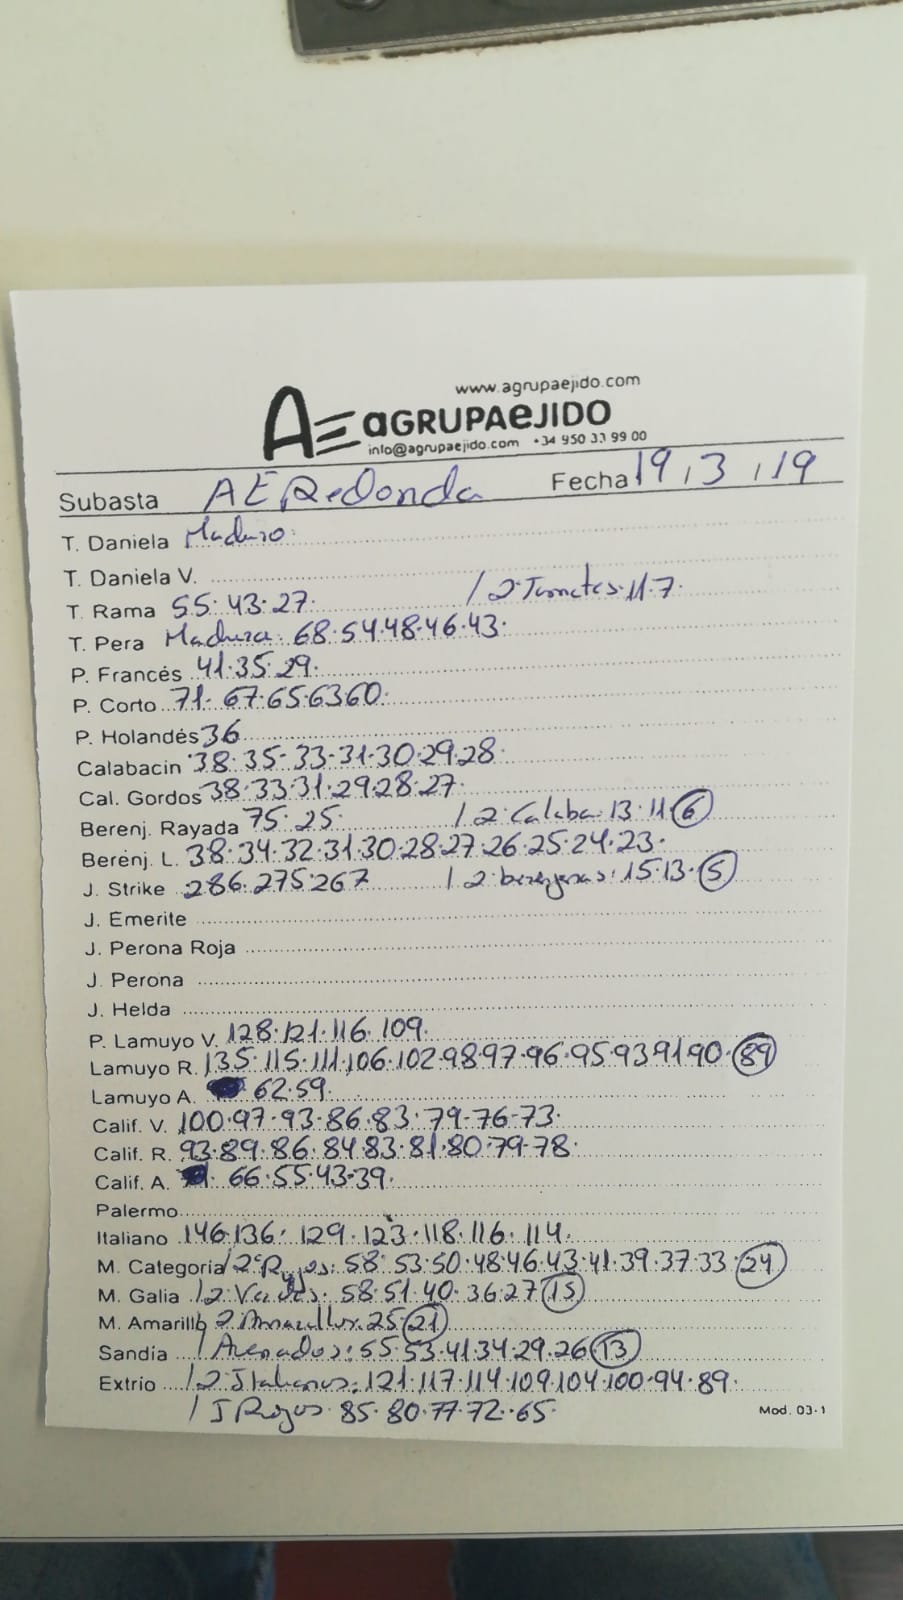 www.agrupaejido.com
AE aGRUPAeJIDO
info@agrupaejido.com +34 950 33 99 00
Subasta AE Redonda Fecha 19 , 3 , 19
T. Daniela Maduro
T. Daniela V.
T. Rama 55·43·27· / 2· 11·7·
T. Pera Madura· 68·54·48·46·43·
P. Francés 41·35·29·
P. Corto 71·67·65·63 60·
P. Holandés 36
Calabacin 38·35·33·31·30·29·28
Cal. Gordos 38·33·31·29·28·27·
Berenj. Rayada 75·25· / 2· Calaba· 13·11· 6
Berenj. L. 38·34·32·31·30·28·27·26·25·24·23·
J. Strike 286·275·267 / 2· berenjenas: 15·13· 5
J. Emerite
J. Perona Roja
J. Perona
J. Helda
P. Lamuyo V. 128·121·116·109·
Lamuyo R. 135·115·111·106·102·98·97·96·95·93 91 90· 89
Lamuyo A. 62·59·
Calif. V. 100·97·93·86·83·79·76·73·
Calif. R. 93·89·86·84·83·81·80·79·78·
Calif. A. 66·55·43·39·
Palermo
Italiano 146·136·129·123·118·116·114·
M. Categoria / 2ª Rojos: 58·53·50·48·46·43·41·39·37·33· 24
M. Galia / 2 Verdes· 58·51·40·36·27 15
M. Amarillo 2 Amarillos· 25· 21
Sandía / Asenados: 55·53·41·34·29·26 13
Extrio / 2 Italianos: 121·117·114·109·104·100·94·89·
/ I Rojos· 85·80·77·72·65·
Mod. 03-1